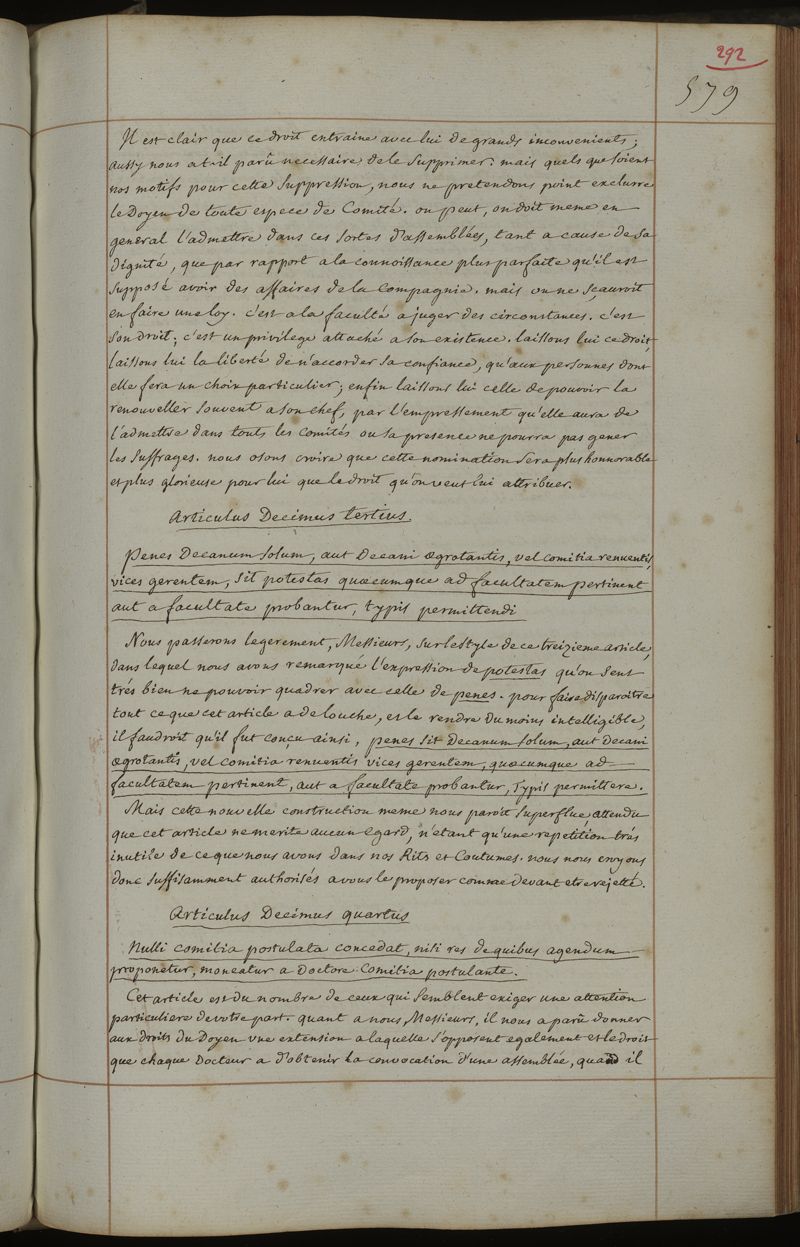 292
579
Il est clair que ce droit entraine avec lui de grands inconvenients;
aussy nous a t-il parû necessaire de le supprimer: mais quels que soient
nos motifs pour cette suppression, nous ne pretendons point exclurre
le Doyen de toute espece de Comité. on peut, on doit meme en
general l'admettre dans ces sortes d'assemblées, tant a cause de sa
dignité, que par rapport a la connoissance plus parfaite qu'il est
supposé avoir des affaires de la compagnie. mais on ne sçauroit
en faire une loy. c'est a la faculté a juger des circonstances. c'est
son droit; c'est un privilege attaché a son existence. laissons lui ce droit,
laissons lui la liberté de n'accorder sa confiance, qu'aux personnes dont
elle fera un choix particulier; enfin laissons lui celle de pouvoir la
renouveller souvent a son chef, par l'empressement qu'elle aura de
l'admettre dans touts les comités ou sa presence ne pourra pas gener
les suffrages. nous osons croire que cette nomination sera plus honnorable
et plus glorieuse pour lui que le droit qu'on veut lui attribuer.
Articulus Decimus tertius.
penes Decanum solum, aut Decani ægrotantis, vel comitia renuentis,
vices gerentem, sit potestas quæcumque ad facultatem pertinent
aut a facultate probantur, typis permittendi
Nous passerons legerement, Messieurs, sur le style de ce treizieme article,
dans lequel nous avons remarqué l'expression de potestas qu'on sent
trés bien ne pouvoir quadrer avec celle de penes. pour faire disparoitre
tout ce que cet article a de louche, et le rendre du moins intelligible,
il faudroit qu'il fut conçu ainsi, penes sit Decanum solum, aut Decani
ægrotantis, vel comitia renuentis vices gerentem, quæcumque ad
facultatem pertinent, aut a facultate probantur, typis permittere.
Mais cette nouvelle construction meme nous paroit superflue, attendu
que cet article ne merite aucun egard, n'etant qu'une repetition trés
inutile de ce que nous avons dans nos Rits et Coutumes. nous nous croyons
donc suffisamment authorisés a vous le proposer comme devant etre rejetté.
Articulus Decimus quartus
Nulli comitia postulata concedat, nisi res de quibus agendum
proponetur, moneatur a Doctore Comitia postulante.
Cet article est du nombre de ceux qui semblent exiger une attention
particuliere de votre part. quant a nous, Messieurs, il nous a parû donner
aux droits du Doyen une extension a laquelle s'opposent egalement et le droit
que chaque Docteur a d'obtenir la convocation d'une assemblée, quand il